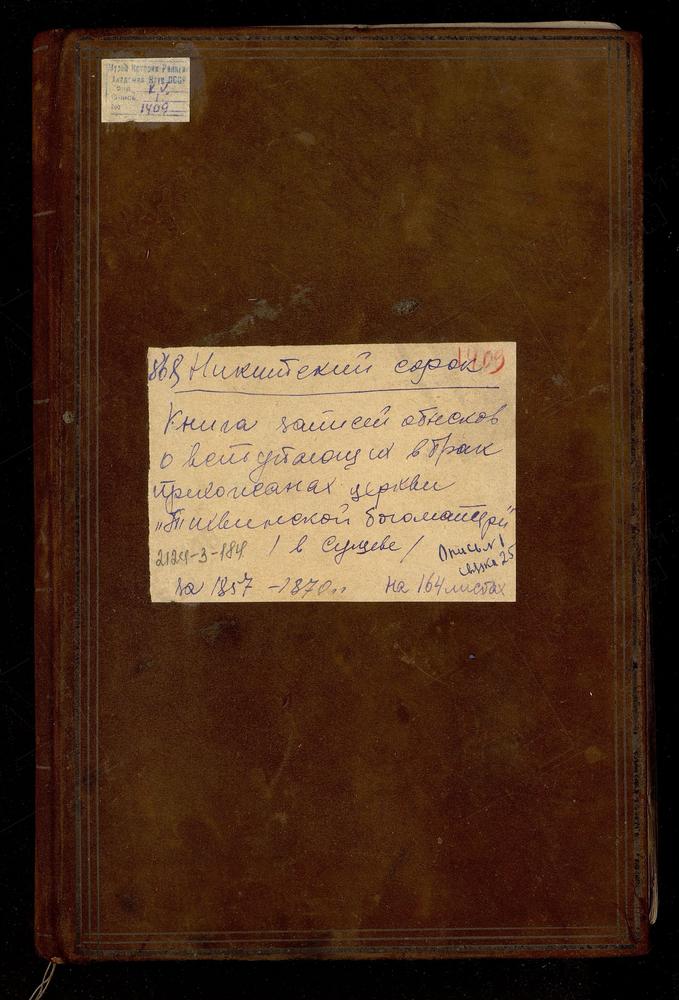 Музей Истории Религии
Академия Наук СССР
Фонд K.V.
Опись 1
№ 1409
868 Никитский сорок 1409
Книга записей обысков
о вступающих в брак
прихожанах церкви
"Тихвинской богоматери"
2124-3-184 / в Сущеве / Опись №1
связка 25
за 1857 - 1870 гг. на 164 листах